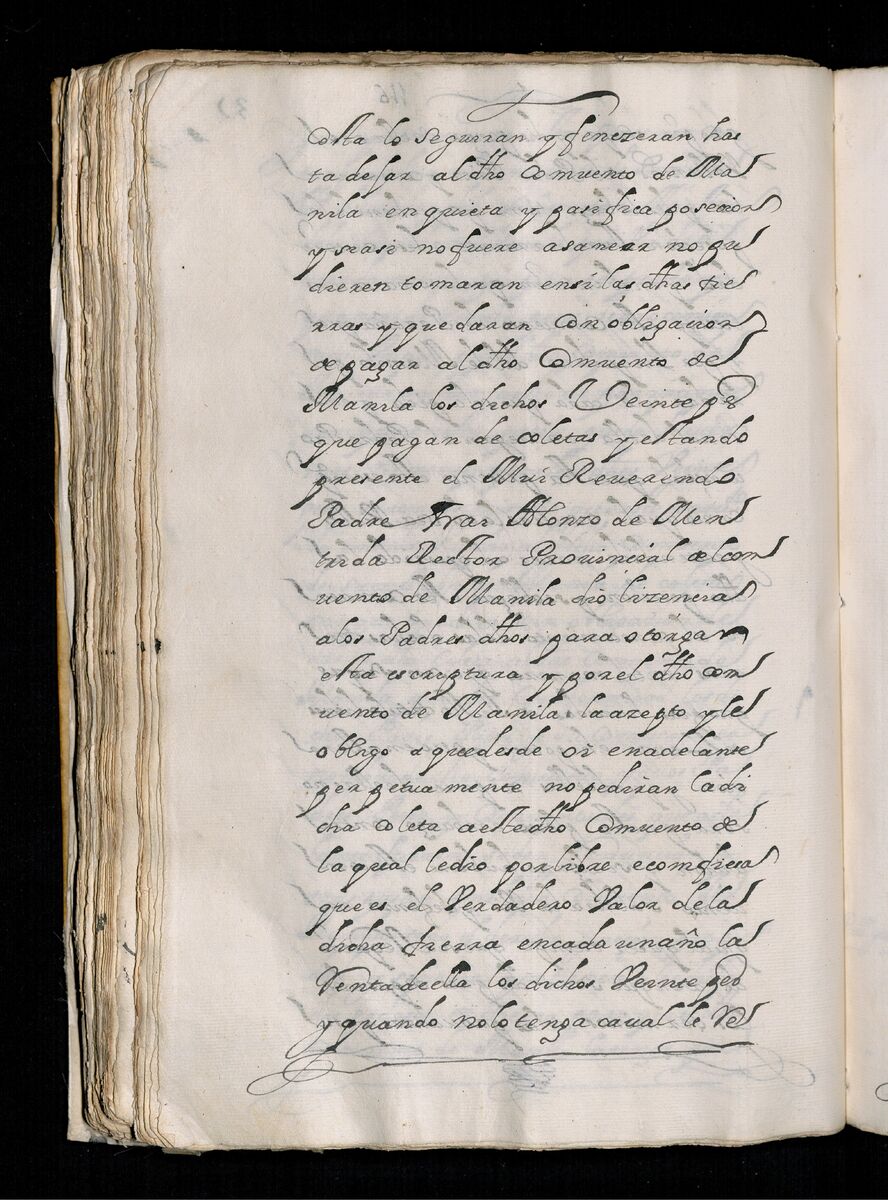 costa lo seguiran y fenezeran has
ta desar al dho Comvento de Ma
nila en quieta y pasifica posecion
y siasi no fuere asanear no pu
dieren tomaran ensi las dhas tie
rras y quedaran Con obligacion
de pagar al dho Comvento de
Manila los dichos Veinte ps
que pagan de coletas y estando
presente el Mui Reverendo
Padre Frai Alonzo de Men
trida Rector Provincial del com
vento de Manila dio lizencia
alos Padres dhos para otorgar
esta escriptura y por el dho com
vento de Manila la azepto y le
obligo a quedesde oi en adelante
perpetuamente no pediran la di
cha coleta aeste dho Comvento de
la qual le dio por libre e comfiesa
que es el Verdadero Valor de la
dicha tierra encada un año la
Renta de ella los dichos Veinte pes
y quando nolo tenga caval le Re